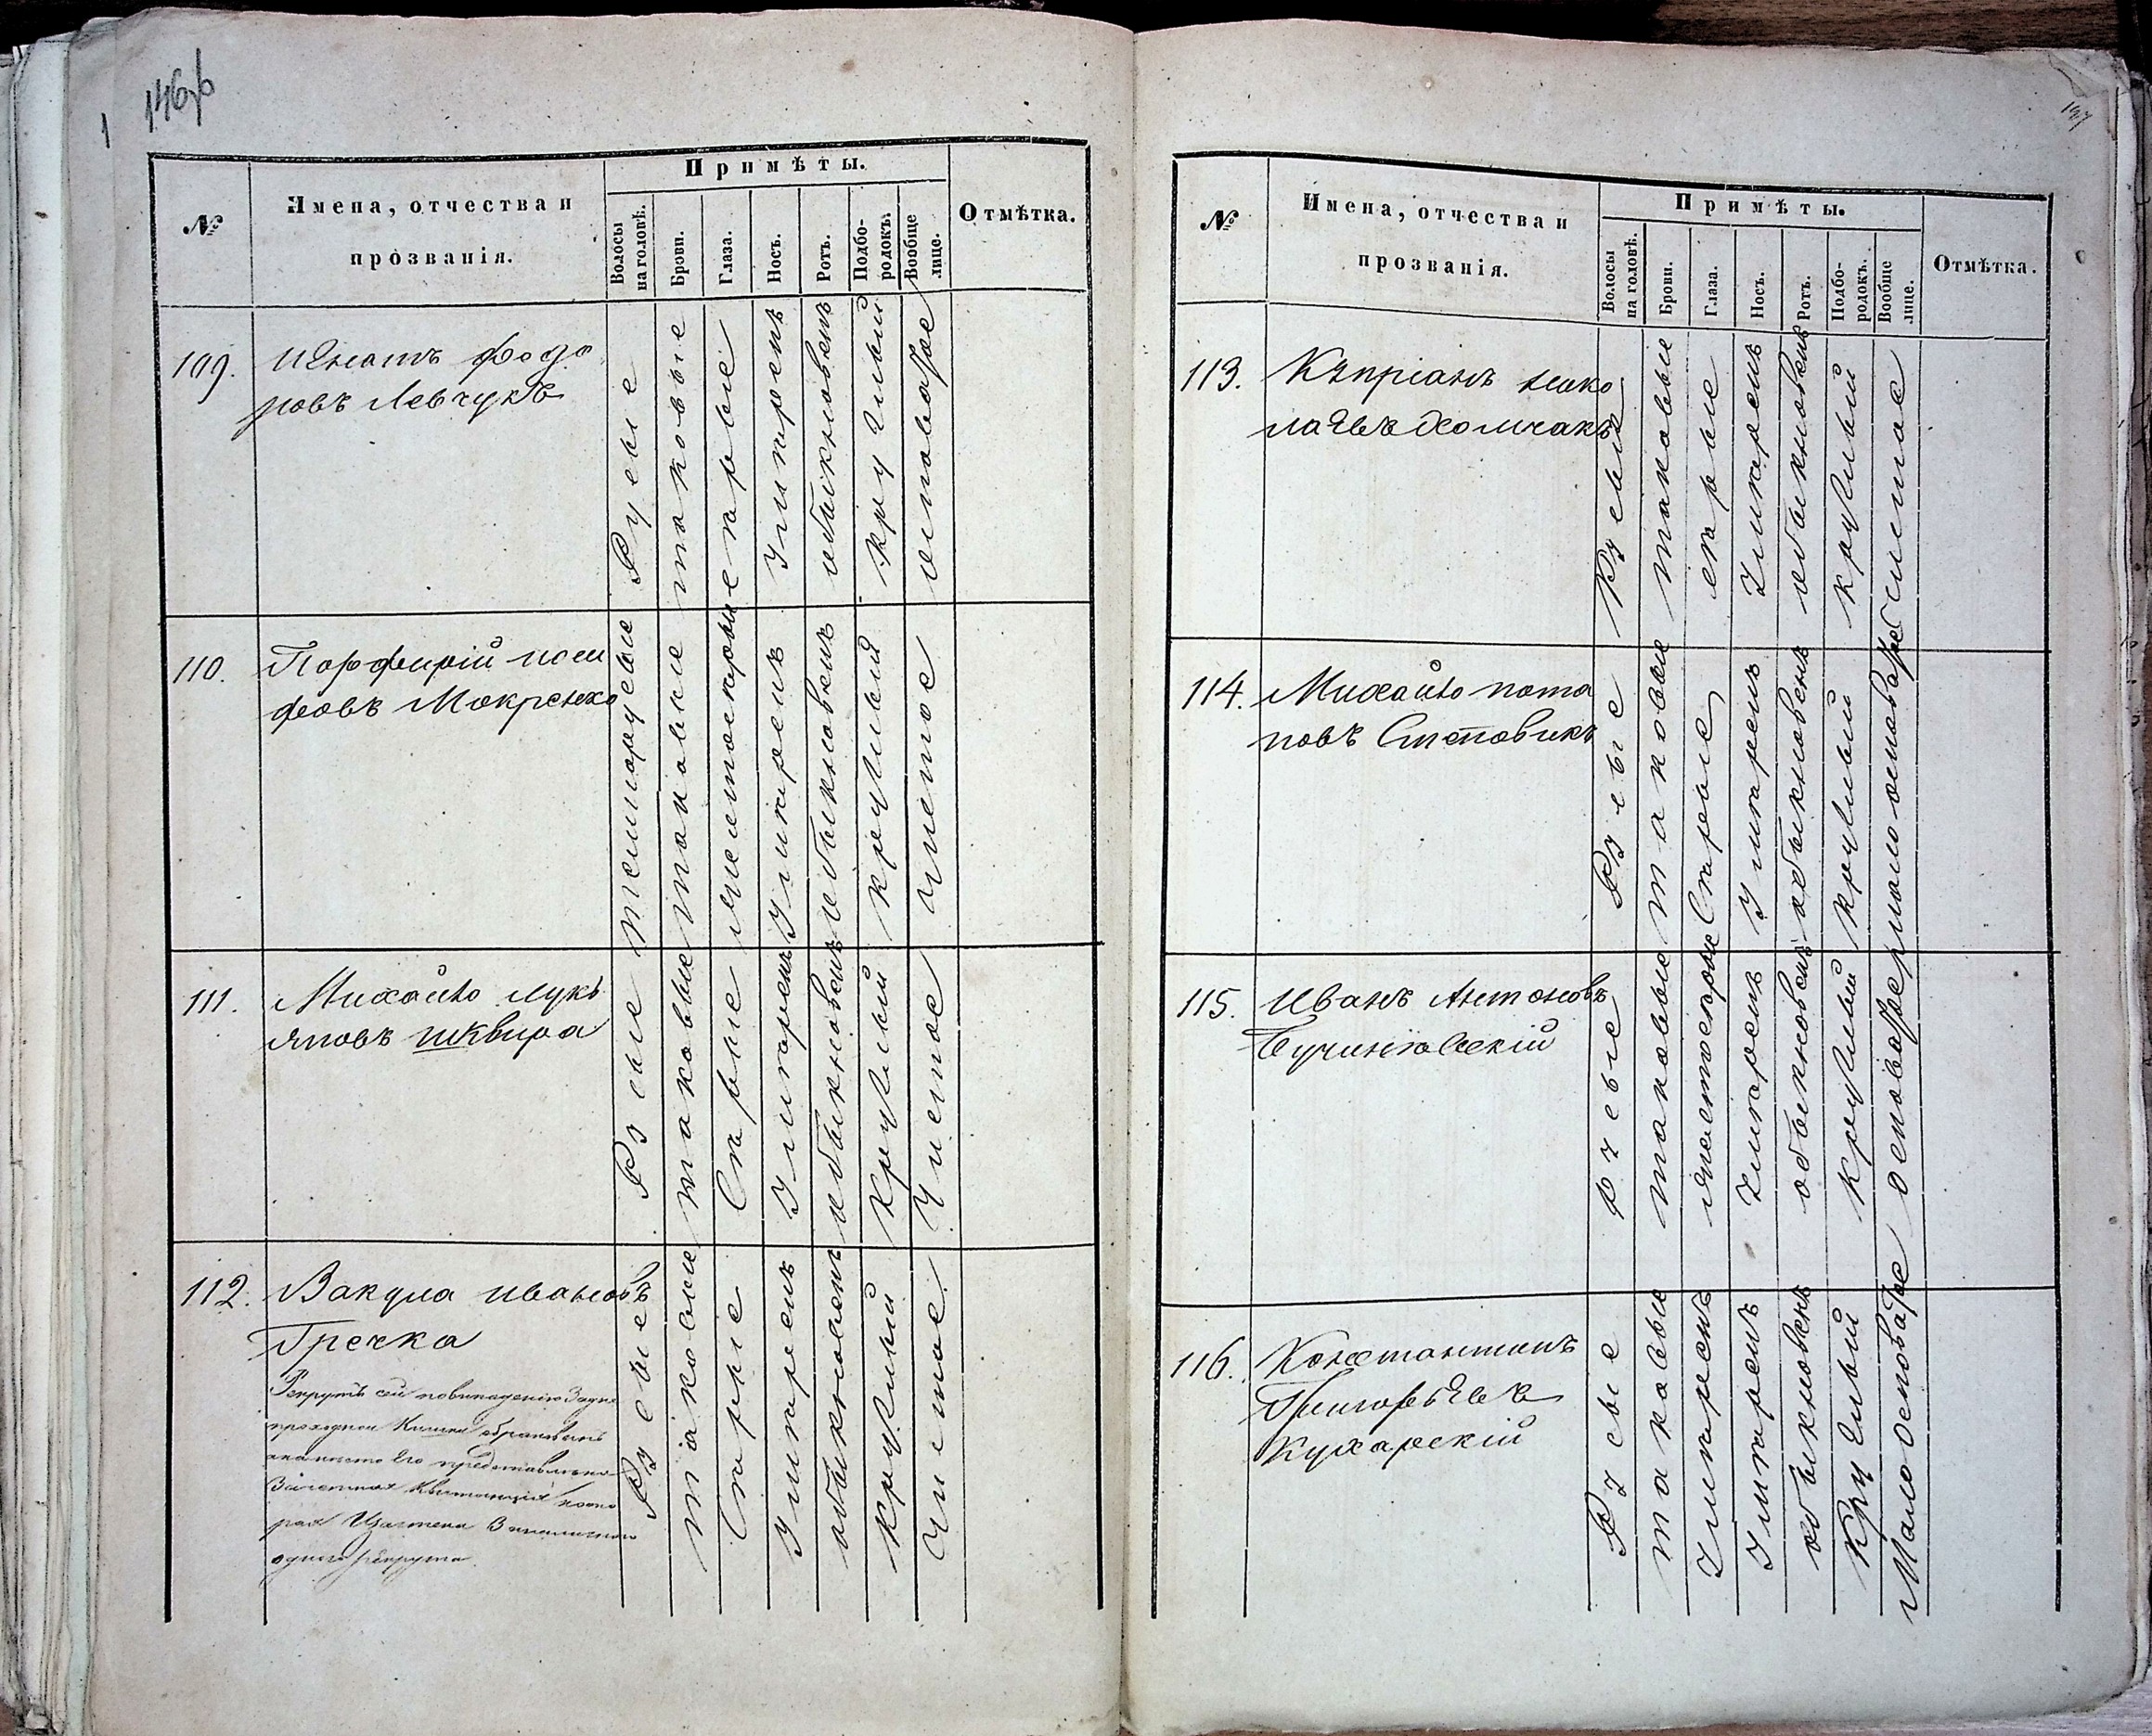 146об
№
Имена, отчества и
прозванія.
Примѣты.
Волосы
на головѣ.
Брови.
Глаза.
Носъ.
Ротъ.
Подбо-
родокъ.
Вообще
лице.
Отмѣтка.
109.
Игнатъ Федо
ровъ Левчукъ
Русые
таковые
серые
Умѣренъ
обыкновенъ
круглый
осповатое
110.
Порфирій иоси
фовъ Мокренко
темнорусые
таковые
желтосерые
Умѣренъ
обыкновенъ
круглый
чистое
111.
Михайло лукь
яновъ шквира
Русые
таковые
Серые
Умѣренъ
обыкновенъ
круглый
Чистое
112.
Вакула ивановъ
Гречка
Рекрутъ сей
проходной Кишки обракованъ
на место Его представлена
Зачетная Квитанція кото
рая
одного рекрута
Русые
таковые
Серые
Умѣренъ
обыкновенъ
круглый
Чистое
147
№
Имена, отчества и
прозванія.
Примѣты.
Волосы
на головѣ.
Брови.
Глаза.
Носъ.
Ротъ.
Подбо-
родокъ.
Вообще
лице.
Отмѣтка.
113.
Кѣпріанъ нико
лаевъ Холмчакъ
Русые
таковые
серые
Умѣренъ
обыкновенъ
круглый
чистое
114.
Михайло пота
повъ Степовикъ
Русые
таковые
Серые
Умѣренъ
обыкновенъ
круглый
мало осповатое
115.
Иванъ Антоновъ
Русые
таковые
желтосерые
Умѣренъ
обыкновенъ
круглый
осповатое
116.
Константинъ
Григорьевъ
Кухарскій
Русые
таковые
Умѣренъ
Умѣренъ
обыкновенъ
Круглый
Мало осповатое